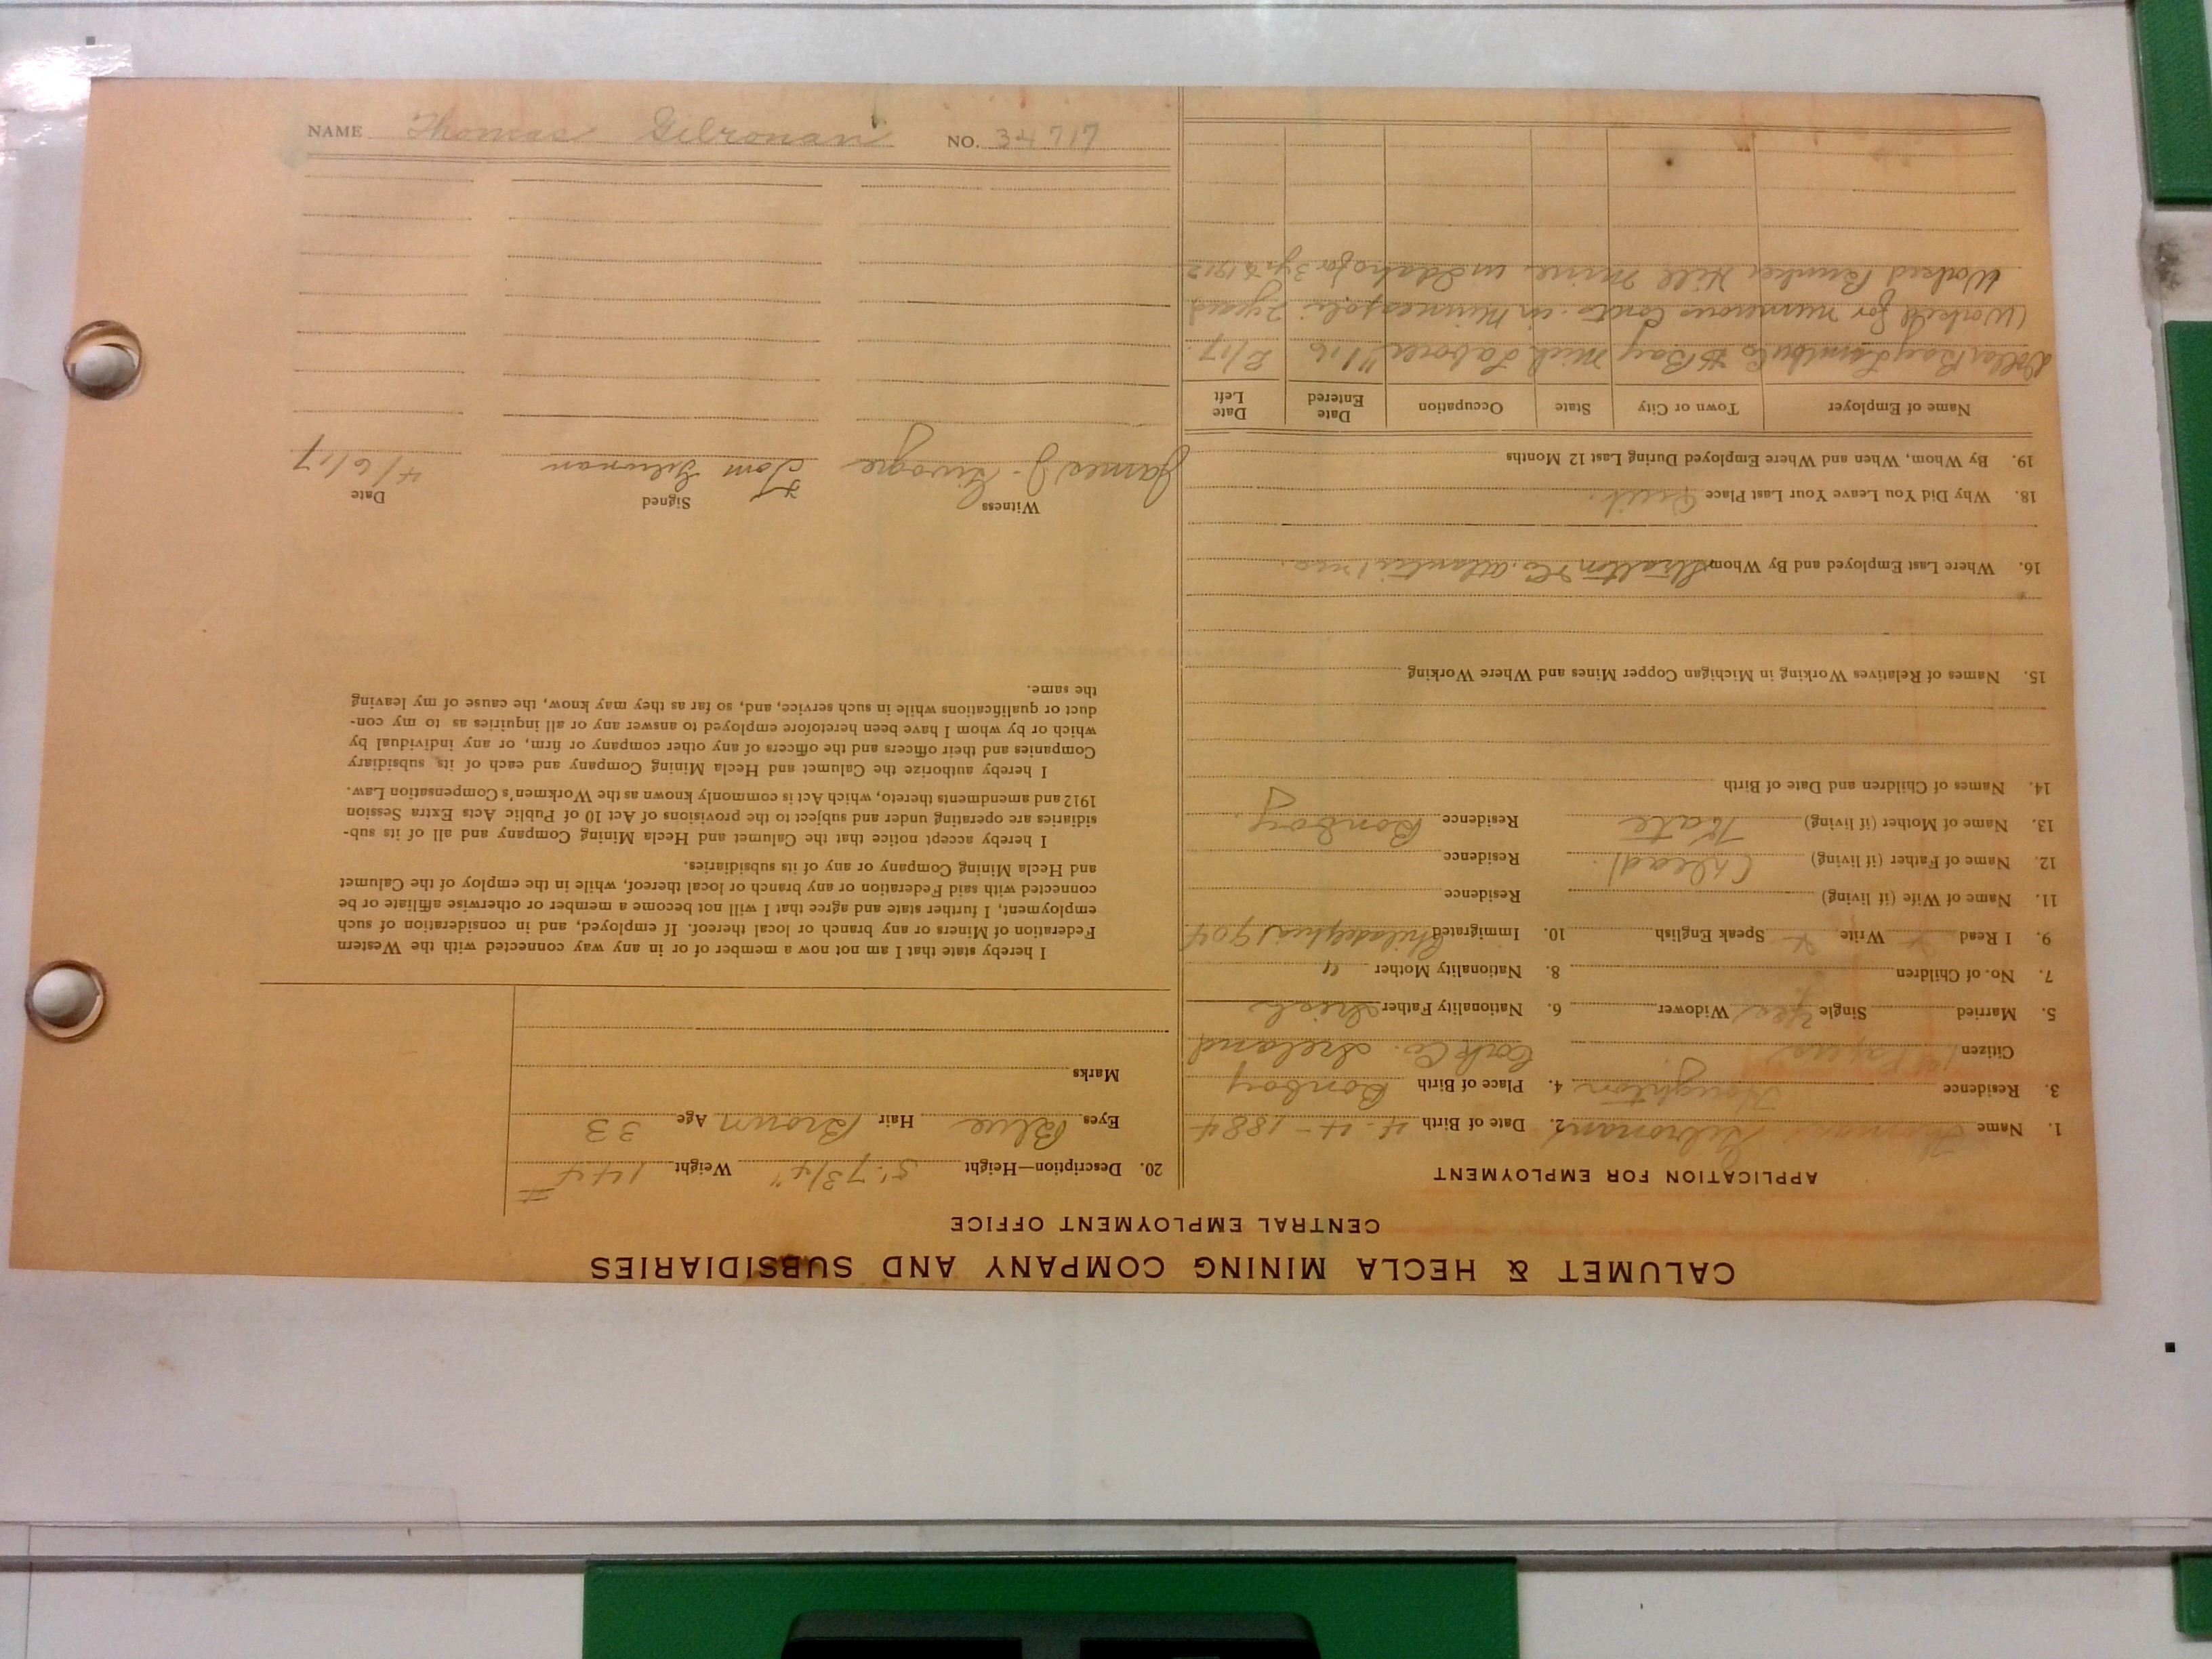 NAME Thomas Gilronan NO. 34717
CALUMET & HECLA MINING COMPANY AND SUBSIDIARIES
CENTRAL EMPLOYMENT OFFICE
APPLICATION FOR EMPLOYMENT
1. Name Thomas Gilronan 2. Date of Birth 4-4-1884
3. Residence Houghton 4. Place of Birth Bonboy
Citizen 1st Papers Cork Co. Ireland
5. Married Single Yes Widower 6. Nationality Father Irish
7. No. of Children 8. Nationality Mother "
9. I Read x Write x Speak English 10. Immigrated Philadelphia 1904
11. Name of Wife (if living) Residence
12. Name of Father (if living) (Dead) Residence
13. Name of Mother (if living) Kate Residence Bonboy
14. Names of Children and Date of Birth
15. Names of Relatives Working in Michigan Copper Mines and Where Working
16. Where Last Employed and By Whom Co. Atlantic
18. Why Did You Leave Your Last Place Quit.
19. By Whom, When and Where Employed During Last 12 Months
Name of Employer Town or City State Occupation Date Entered Date Left
Dollar Bay Lumber Co D Bay Mich Laborer 11/16 2/17.
(Worked for numerous Contr. in Minneapolis 2 years
Worked Bunker Hill Mine in Idaho for 3 yrs 1912
20. Description—Height 5' 7 3/4" Weight 144#
Eyes Blue Hair Brown Age 33
Marks
I hereby state that I am not now a member of or in any way connected with the Western
Federation of Miners or any branch or local thereof. If employed, and in consideration of such
employment, I further state and agree that I will not become a member or otherwise affiliate or be
connected with said Federation or any branch or local thereof, while in the employ of the Calumet
and Hecla Mining Company or any of its subsidiaries.
I hereby accept notice that the Calumet and Hecla Mining Company and all of its sub-
sidiaries are operating under and subject to the provisions of Act 10 of Public Acts Extra Session
1912 and amendments thereto, which Act is commonly known as the Workmen's Compensation Law.
I hereby authorize the Calumet and Hecla Mining Company and each of its subsidiary
Companies and their officers and the officers of any other company or firm, or any individual by
which or by whom I have been heretofore employed to answer any or all inquiries as to my con-
duct or qualifications while in such service, and, so far as they may know, the cause of my leaving
the same.
Witness Signed Date
James J. Tom Gilronan 4/6/17